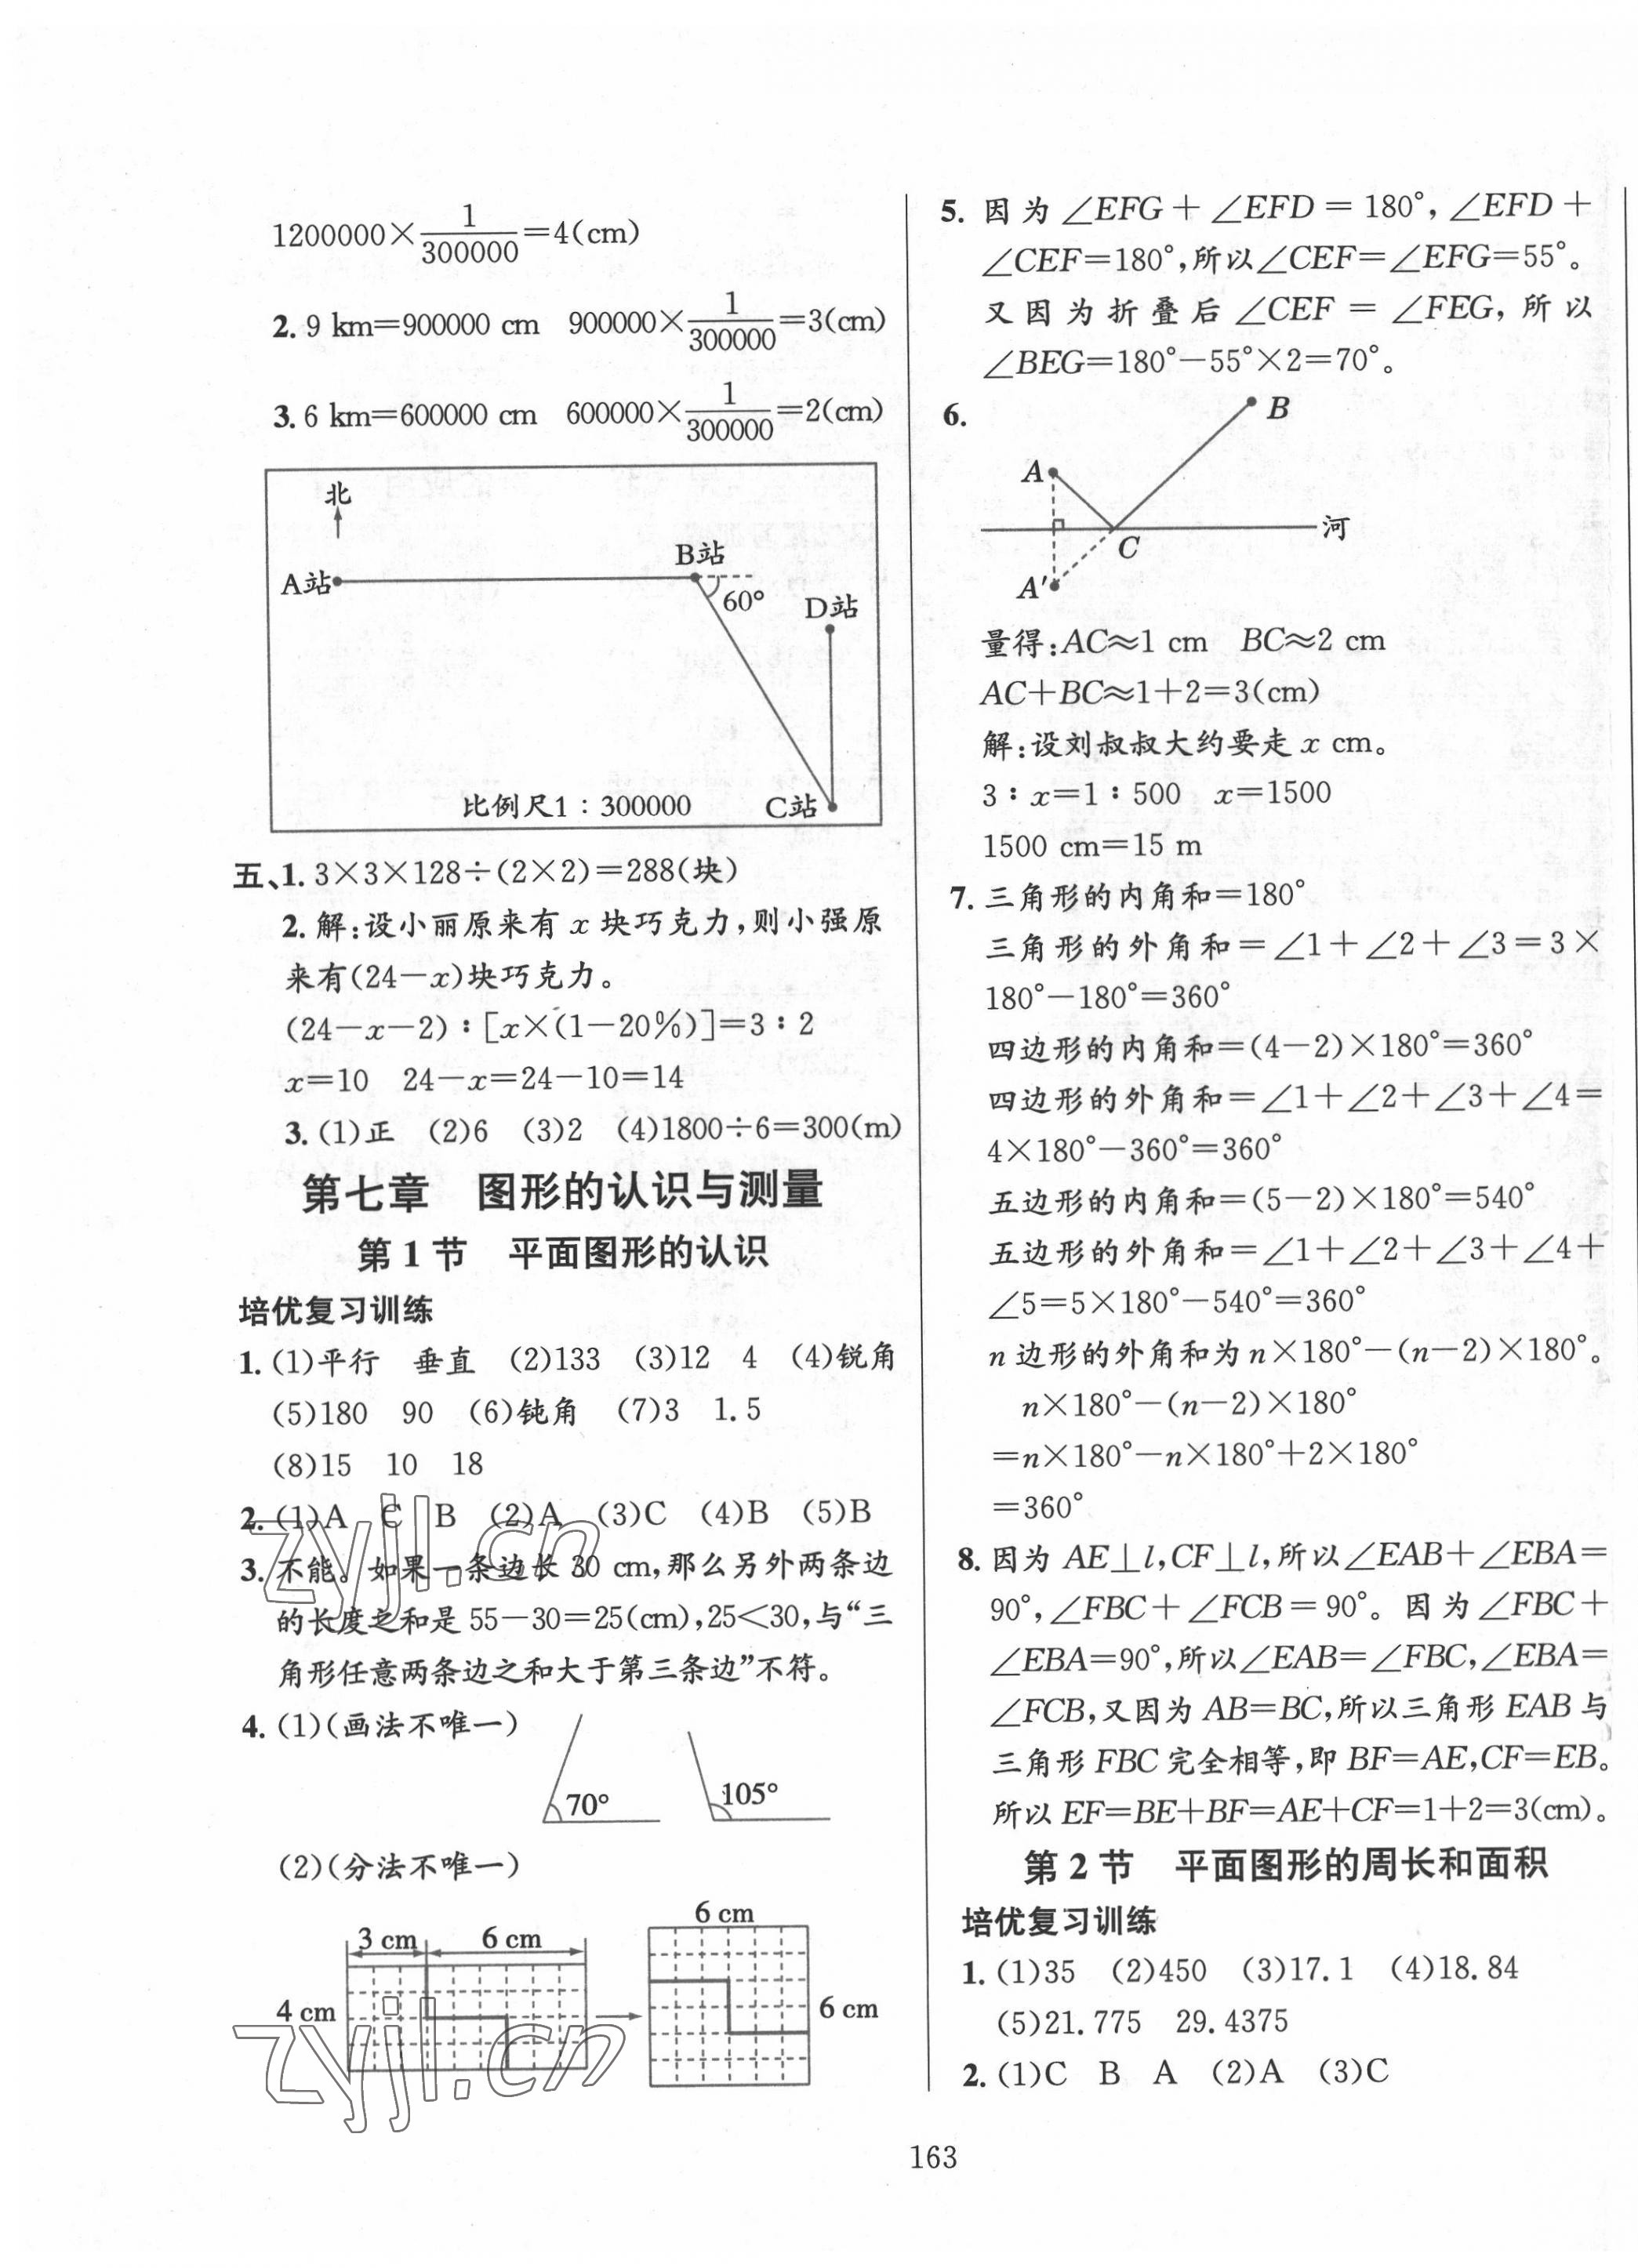 1200000×1/300000=4(cm)
2. 9 km=900000 cm 900000×1/300000=3(cm)
3. 6 km=600000 cm 600000×1/300000=2(cm)
北
A站
B站
60°
D站
比例尺1∶300000
C站
五、1. 3×3×128÷(2×2)=288(块)
2. 解:设小丽原来有 x 块巧克力,则小强原
来有(24-x)块巧克力。
(24-x-2)∶[x×(1-20%)]=3∶2
x=10 24-x=24-10=14
3. (1)正 (2)6 (3)2 (4)1800÷6=300(m)
第七章 图形的认识与测量
第 1 节 平面图形的认识
培优复习训练
1. (1)平行 垂直 (2)133 (3)12 4 (4)锐角
(5)180 90 (6)钝角 (7)3 1.5
(8)15 10 18
2. (1)A C B (2)A (3)C (4)B (5)B
3. 不能。如果一条边长 30 cm,那么另外两条边
的长度之和是 55-30=25(cm),25<30,与“三
角形任意两条边之和大于第三条边”不符。
4. (1)(画法不唯一)
70°
105°
(2)(分法不唯一)
3 cm
6 cm
4 cm
6 cm
6 cm
zyjl.cn
zyjl.cn
5. 因为∠EFG+∠EFD=180°,∠EFD+
∠CEF=180°,所以∠CEF=∠EFG=55°。
又因为折叠后∠CEF=∠FEG,所以
∠BEG=180°-55°×2=70°。
6.
B
A
河
C
A′
量得:AC≈1 cm BC≈2 cm
AC+BC≈1+2=3(cm)
解:设刘叔叔大约要走 x cm。
3∶x=1∶500 x=1500
1500 cm=15 m
7. 三角形的内角和=180°
三角形的外角和=∠1+∠2+∠3=3×
180°-180°=360°
四边形的内角和=(4-2)×180°=360°
四边形的外角和=∠1+∠2+∠3+∠4=
4×180°-360°=360°
五边形的内角和=(5-2)×180°=540°
五边形的外角和=∠1+∠2+∠3+∠4+
∠5=5×180°-540°=360°
n 边形的外角和为 n×180°-(n-2)×180°。
n×180°-(n-2)×180°
=n×180°-n×180°+2×180°
=360°
8. 因为 AE⊥l,CF⊥l,所以∠EAB+∠EBA=
90°,∠FBC+∠FCB=90°。因为∠FBC+
∠EBA=90°,所以∠EAB=∠FBC,∠EBA=
∠FCB,又因为 AB=BC,所以三角形 EAB 与
三角形 FBC 完全相等,即 BF=AE,CF=EB。
所以 EF=BE+BF=AE+CF=1+2=3(cm)。
第 2 节 平面图形的周长和面积
培优复习训练
1. (1)35 (2)450 (3)17.1 (4)18.84
(5)21.775 29.4375
2. (1)C B A (2)A (3)C
163